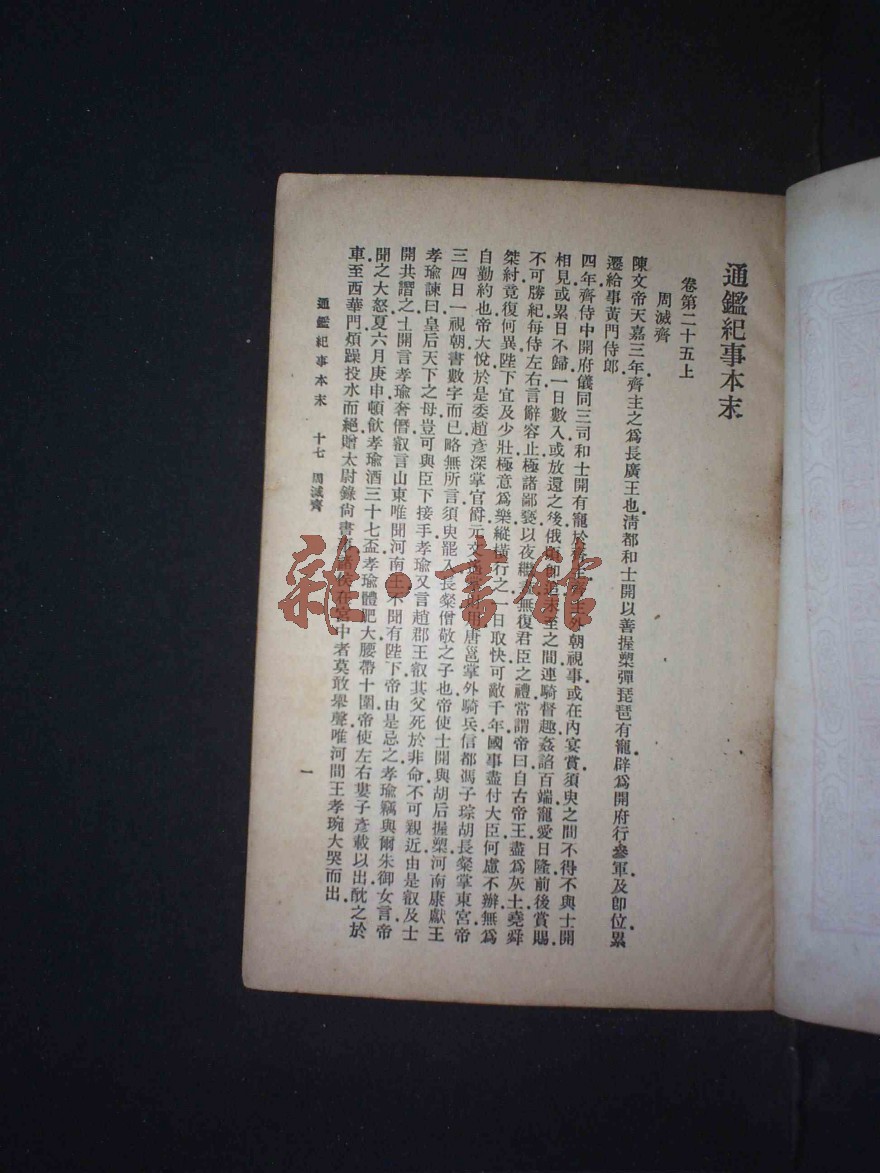 通鑑紀事本末
卷第二十五上
周滅齊
陳文帝天嘉三年齊主之爲長廣王也淸都和士開以善握槊彈琵琶有寵辟爲開府行參軍及卽位累
遷給事黃門侍郎
四年齊侍中開府儀同三司和士開有寵於齊主齊主外朝視事或在內宴賞須臾之間不得不與士開
相見或累日不歸一日數入或放還之後俄頃卽追未至之間連騎督趣姦諂百端寵愛日隆前後賞賜
不可勝紀每侍左右言辭容止極諸鄙褻以夜繼晝無復君臣之禮常謂帝曰自古帝王盡爲灰土堯舜
桀紂竟復何異陛下宜及少壯極意爲樂縱橫行之一日取快可敵千年國事盡付大臣何慮不辦無爲
自勤約也帝大悅於是委趙彥深掌官爵元文遙掌財用唐邕掌外騎兵信都馮子琮胡長粲掌東宮帝
三四日一視朝書數字而已略無所言須臾罷入長粲僧敬之子也帝使士開與胡后握槊河南康獻王
孝瑜諫曰皇后天下之母豈可與臣下接手孝瑜又言趙郡王叡其父死於非命不可親近由是叡及士
開共譖之士開言孝瑜奢僭叡言山東唯聞河南王不聞有陛下帝由是忌之孝瑜竊與爾朱御女言帝
聞之大怒夏六月庚申頓飮孝瑜酒三十七盃孝瑜體肥大腰帶十圍帝使左右婁子彥載以出酖之於
車至西華門煩躁投水而絕贈太尉錄尙書事諸侯在宮中者莫敢舉聲唯河間王孝琬大哭而出
通鑑紀事本末 十七 周滅齊
一
雜·書館